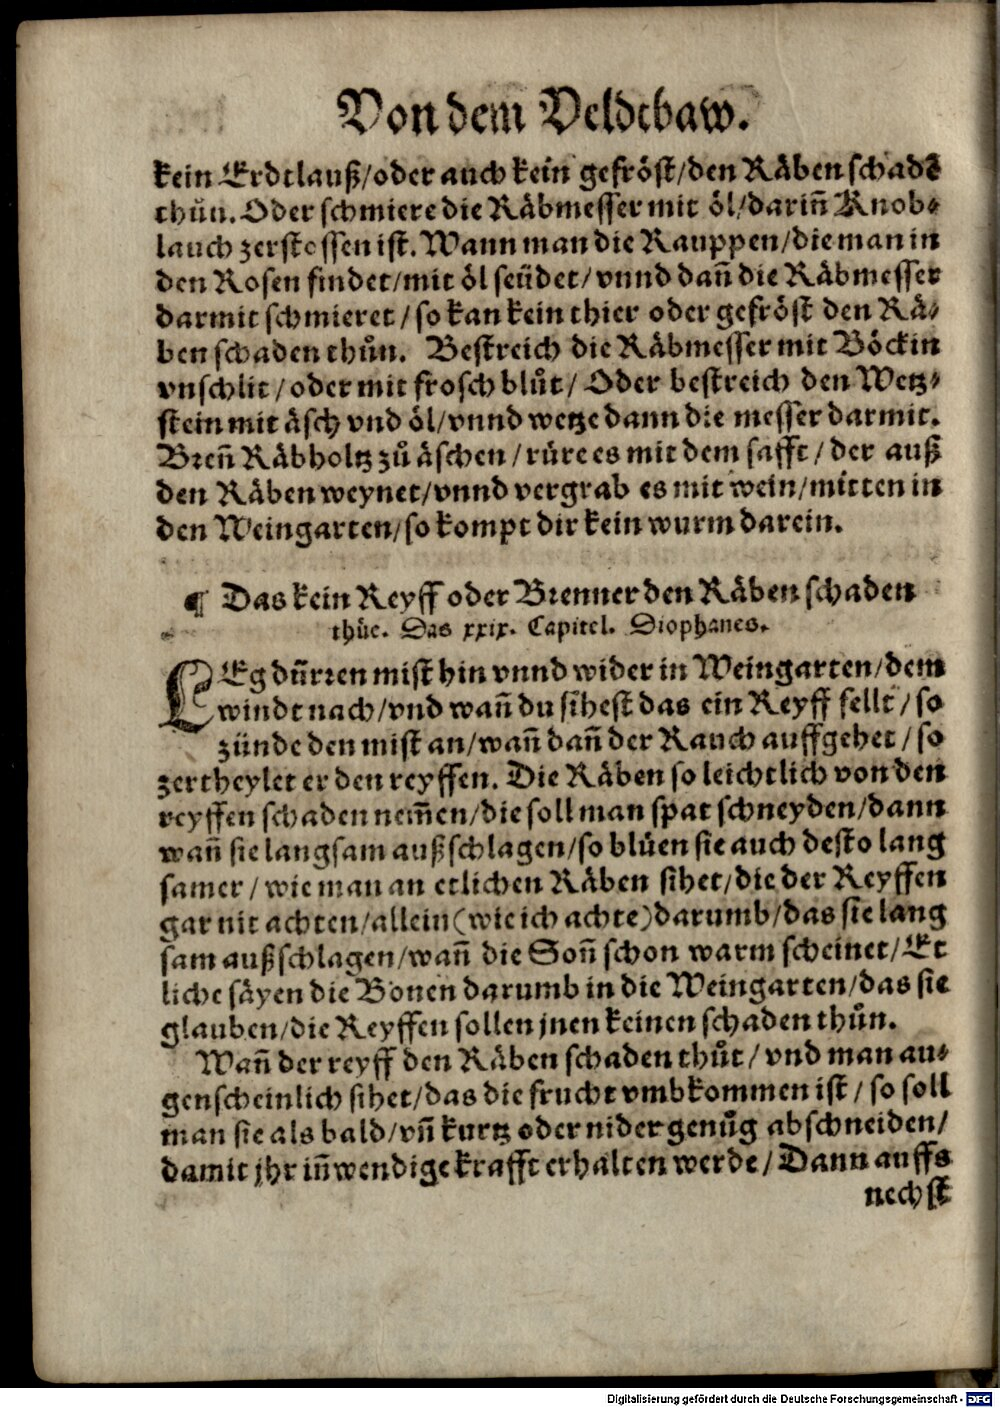 Von dem Veldtbaw.
kein Erdtlauß/oder auch kein gefröst/den Räben schadē
thůn. Oder schmiere die Räbmesser mit öl/dariñ Knob⸗
lauch zerstossen ist. Wann man die Rauppen/die man in
den Rosen findet/mit öl seüdet/vnnd dañ die Räbmesser
darmit schmieret/so kan kein thier oder gefröst den Rä⸗
ben schaden thůn. Bestreich die Räbmesser mit Böckin
vnschlit/oder mit froschblůt/Oder bestreich den Wetz⸗
stein mit äsch vnd öl/vnnd wetze dann die messer darmit.
Breñ Räbholtz zů äschen/rüre es mit dem safft/der auß
den Räben weynet/vnnd vergrab es mit wein/mitten in
den Weingarten/so kompt dir kein wurm darein.
¶ Das kein Reyff oder Brenner den Räben schaden
thüe. Das xxix. Capitel. Diophanes.
LEg dürren mist hin vnnd wider in Weingarten/dem
windt nach/vnd wañ du sihest das ein Reyff fellt/so
zünde den mist an/wañ dañ der Rauch auffgehet/so
zertheylet er den reyffen. Die Räben so leichtlich von den
reyffen schaden nem̃en/die soll man spat schneyden/dann
wañ sie langsam außschlagen/so blüen sie auch desto lang
samer/wie man an etlichen Räben sihet/die der Reyffen
gar nit achten/allein (wie ich achte) darumb/das sie lang
sam außschlagen/wañ die Soñ schon warm scheinet/Et
liche säyen die Bonen darumb in die Weingarten/das sie
glauben/die Reyffen sollen jnen keinen schaden thůn.
Wañ der reyff den Räben schaden thůt/vnd man au⸗
genscheinlich sihet/das die frucht vmbkommen ist/so soll
man sie als bald/vñ kurtz oder nider genůg abschneiden/
damit jhr iñwendige krafft erhalten werde/Dann auffs
nechst
Digitalisierung gefördert durch die Deutsche Forschungsgemeinschaft - DFG